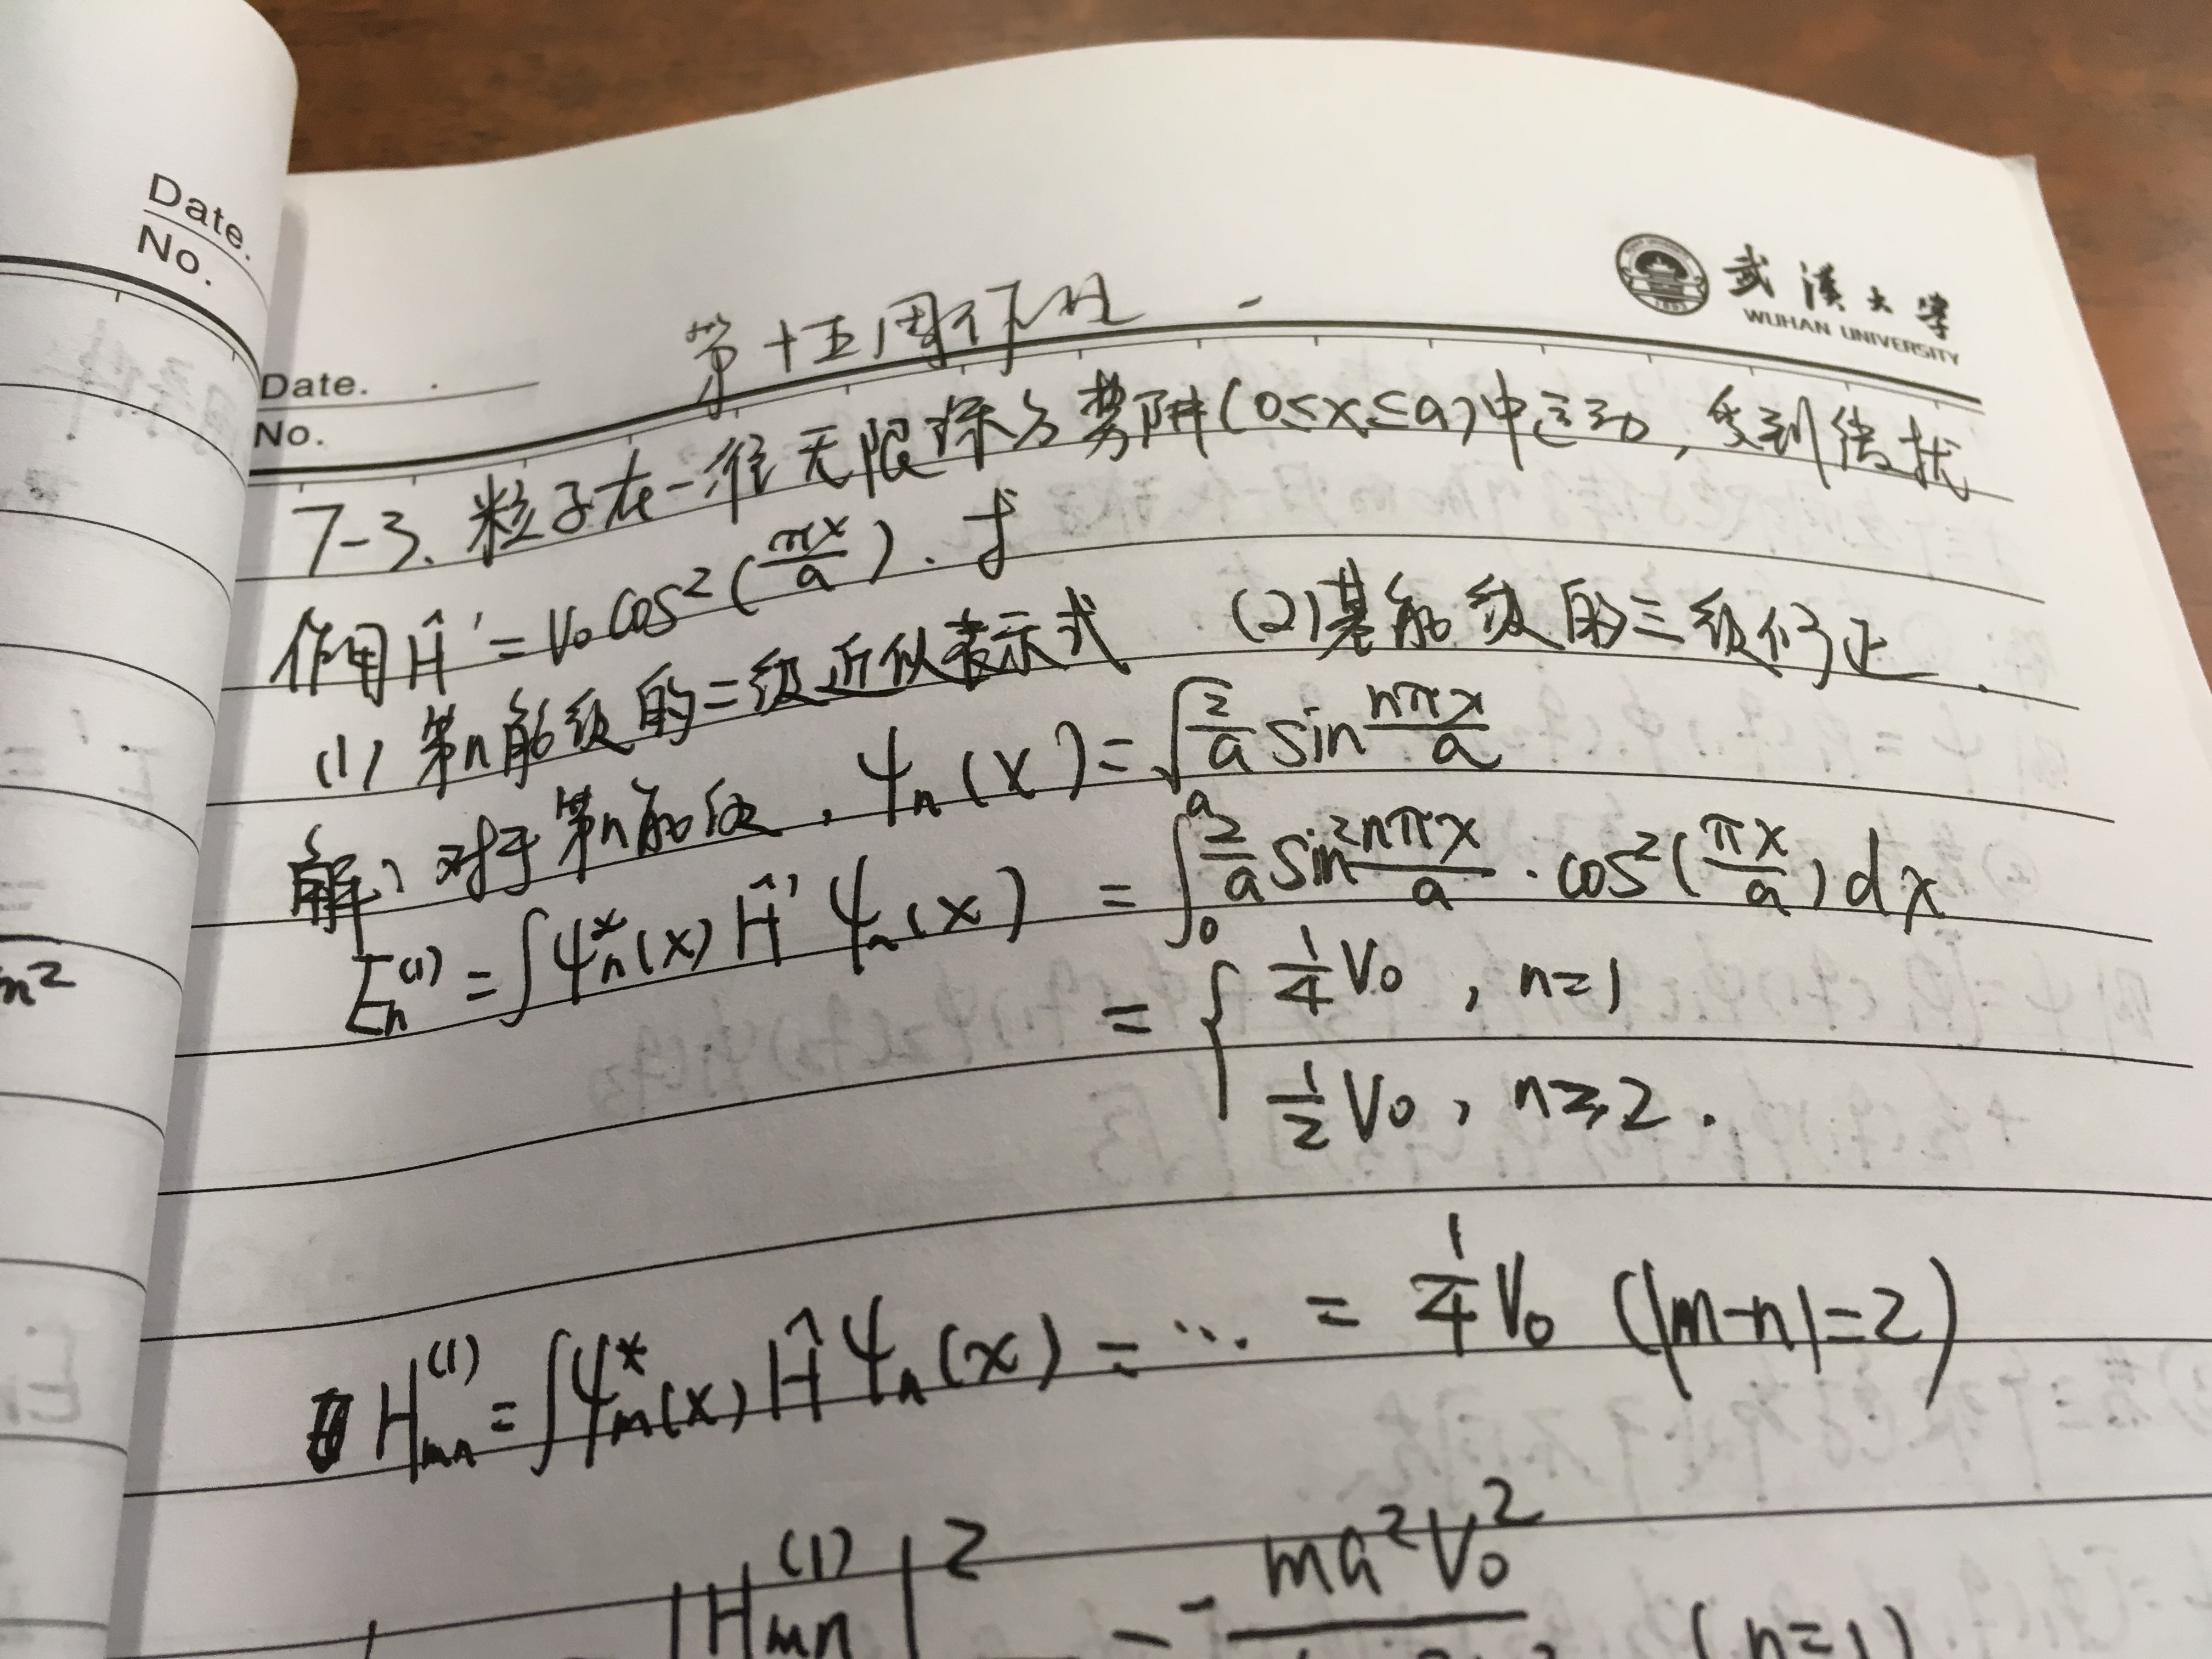 Date.
No.
武汉大学
WUHAN UNIVERSITY
第十五周作业
7-3、粒子在一维无限深方势阱(0≤x≤a)中运动,受到微扰
作用Ĥ'=V₀cos²(πx/a).求
(1) 第n能级的二级近似表示式 (2)基能级的三级修正.
解:对于第n能级,ψₙ(x)=√(2/a) sin nπx/a
Eₙ⁽¹⁾=∫ψₙ*(x)Ĥ'ψₙ(x) = ∫₀ᵃ 2/a sin² nπx/a · cos²(πx/a)dx
= { 1/4 V₀, n=1
1/2 V₀, n≥2.
Hₘₙ⁽¹⁾=∫ψₘ*(x)Ĥ'ψₙ(x)=... = 1/4 V₀ (|m-n|=2)
|Hₘₙ⁽¹⁾|² ma²V₀²
(n=1)
Date.
No.